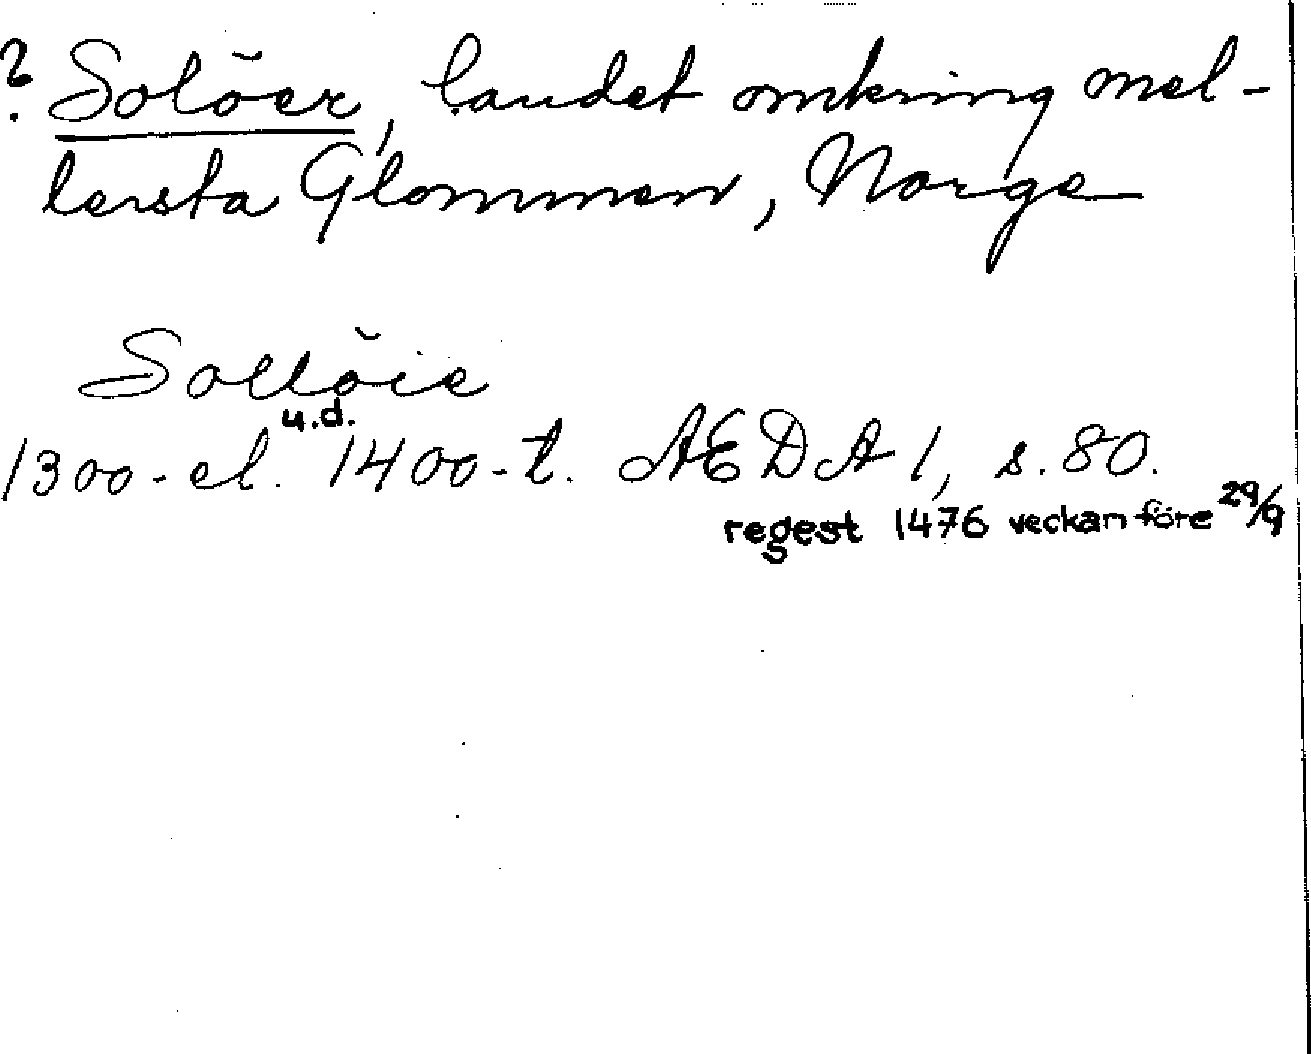 ? Solöer, landet omkring mel-
lersta Glommen, Norge
Sollöie
u.d.
1300-el. 1400-t. AEDA 1, s. 80.
regest 1476 veckan före 29/9